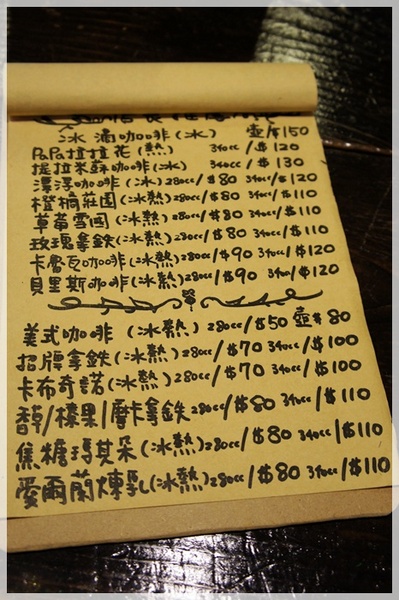 冰滴咖啡(冰) 壺/$150
PaPa拉拉花(熱) 340cc/$120
提拉米蘇咖啡(冰) 340cc/$130
漂浮咖啡(冰)280cc/$80 340cc/$120
橙桐莊園(冰熱)280cc/$80 340cc/$110
草莓雪國(冰熱)280cc/$80 340cc/$110
玫瑰拿鉄(冰熱)280cc/$80 340cc/$110
卡魯瓦咖啡(冰熱)280cc/$90 340cc/$120
貝里斯咖啡(冰熱)280cc/$90 340cc/$120
美式咖啡(冰熱)280cc/$50 壺$80
招牌拿鉄(冰熱)280cc/$70 340cc/$100
卡布奇諾(冰熱)280cc/$70 340cc/$100
香草/榛果/摩卡拿鉄280cc/$80 340cc/$110
焦糖瑪其朵(冰熱)280cc/$80 340cc/$110
愛爾蘭煉乳(冰熱)280cc/$80 340cc/$110